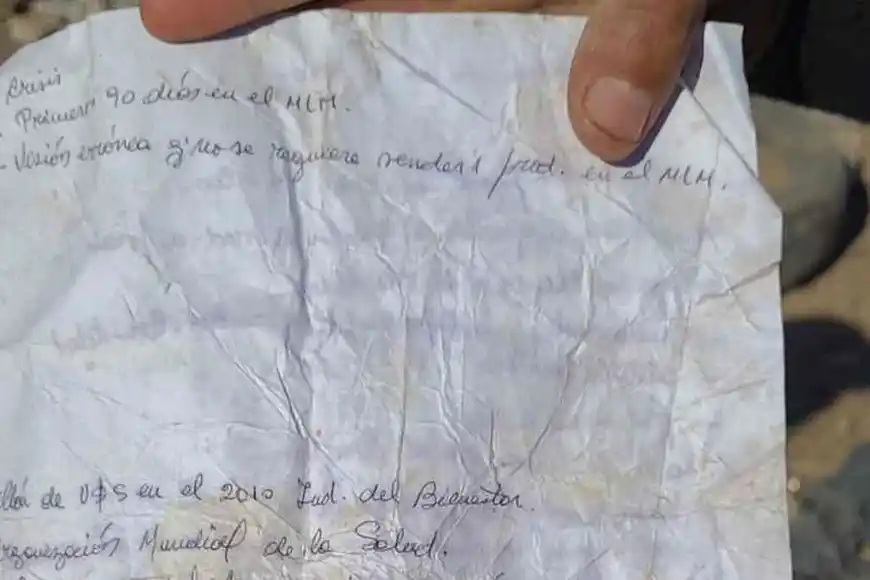 crisis
- Primeros 90 días en el MLM.
- Visión errónea q' no se requiere vender prod. en el MLM.
de U$S en el 2010 Ind. del Bienestar.
Organización Mundial de la Salud.